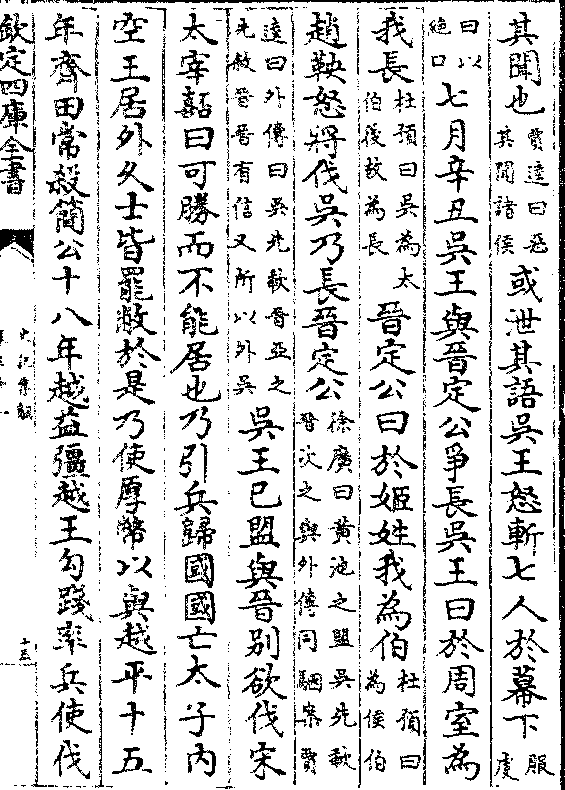 其聞也賈逵曰惡其聞諸侯或泄其語吳王怒斬七人於幕下服虔
曰以絶口七月辛丑吳王與晉定公爭長吳王曰於周室為
我長杜預曰吳為太伯後故為長晉定公曰於姬姓我為伯杜預曰為侯伯
趙鞅怒將伐吳乃長晉定公徐廣曰黄池之盟吳先歃晉次之與外傳同駰案賈
逵曰外傳曰吳先歃晉亞之先敘晉晉有信又所以外吳吳王已盟與晉别欲伐宋
太宰嚭曰可勝而不能居也乃引兵歸國國亡太子内
空王居外久士皆罷敝於是乃使厚幣以與越平十五
年齊田常殺簡公十八年越益彊越王勾踐率兵使伐
欽定四庫全書
史記集解